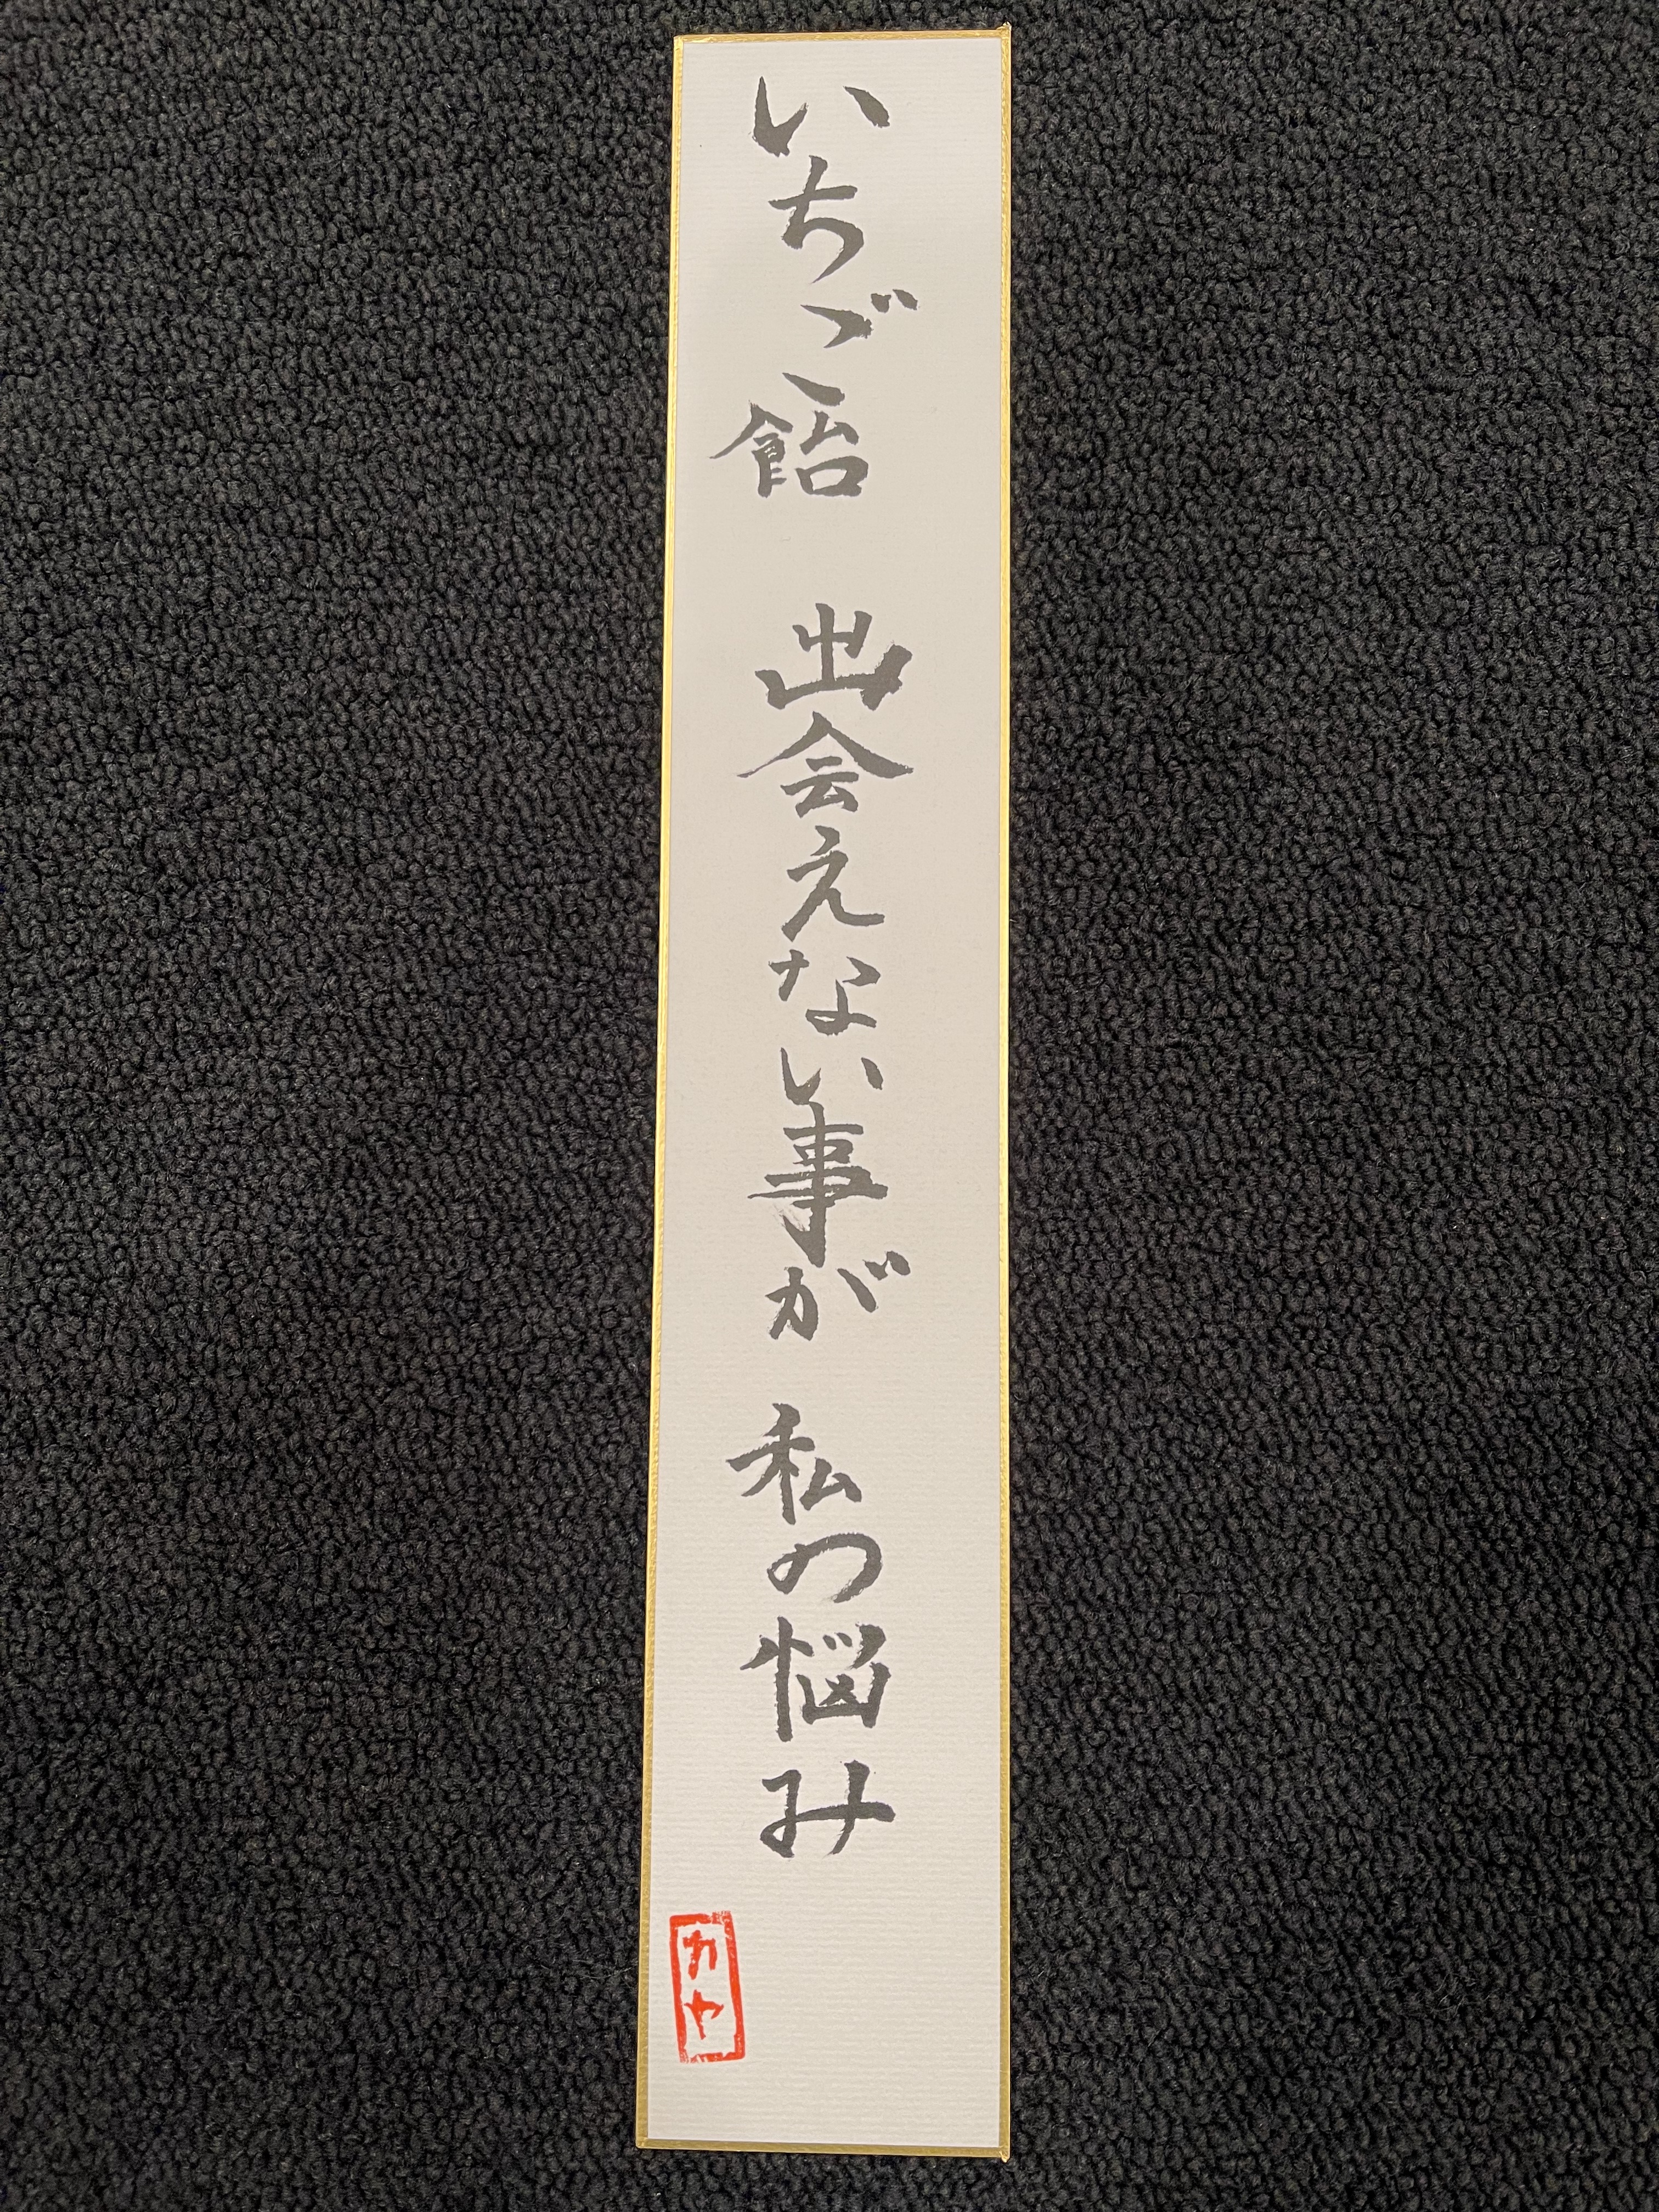 いちご飴 出会えない事が 私の悩み
カヤ